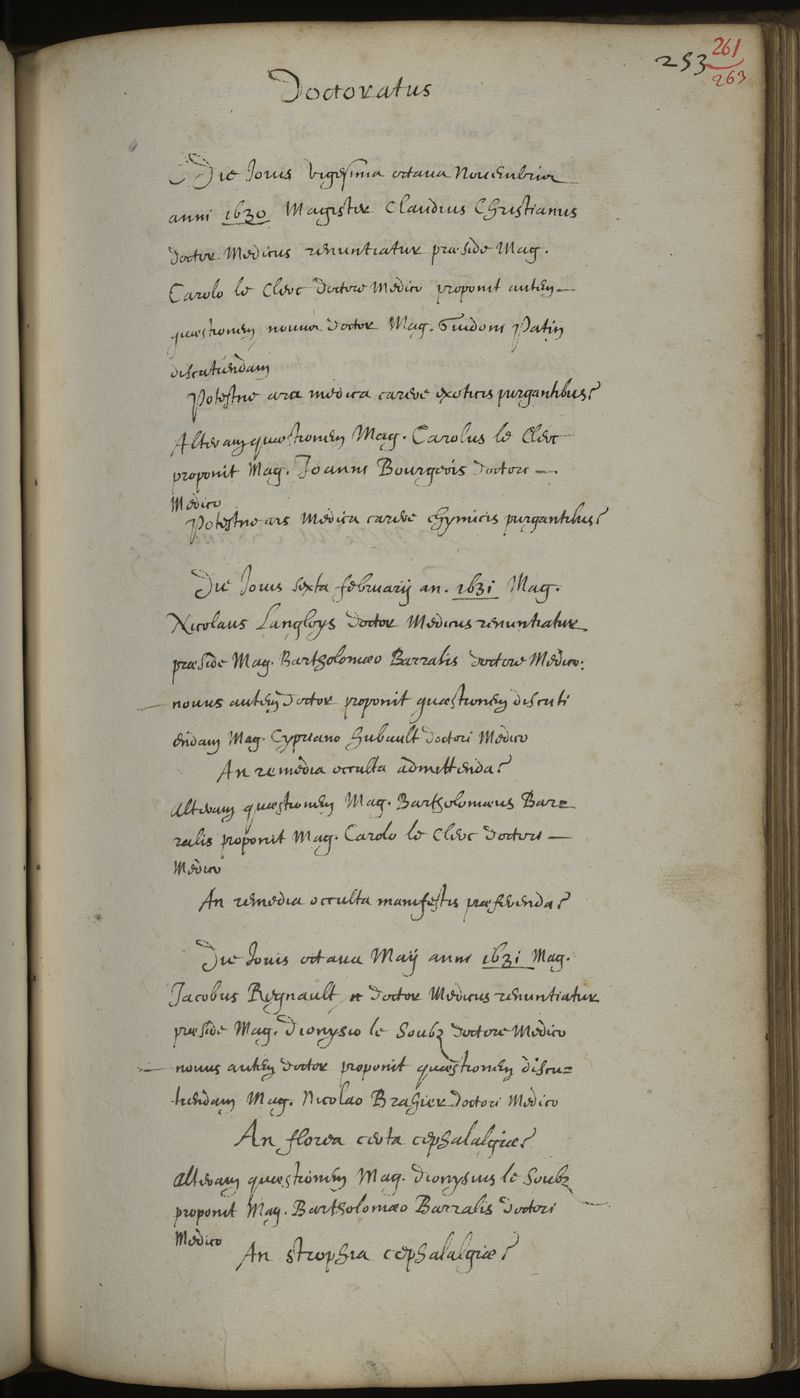 253 261
263
Doctoratus
Die Jovis vigesima octava Novembris
anni 1630 Magister Claudius Christianus
doctor Medicus renuntiatur præside Mag.
Carolo le Clerc doctore Medico proponit autem
quæstionem novus doctor Mag. Guidoni Patin
discutiendam
Potestne ars medica carere exoticis purgantibus?
Alteram quæstionem Mag. Carolus le Clerc
proponit Mag. Joanni Bourgeois doctori
Medico
Potestne ars Medica carere chymicis purgantibus?
Die Jovis sexta februarij an. 1631 Mag.
Nicolaus Langloys doctor Medicus renuntiatur
præside Mag. Bartholomæo Barralis doctore Medico:
novus autem doctor proponit quæstionem discuti
endam Mag. Cypriano Hubault doctori Medico
An remedia occulta admittenda?
alteram quæstionem Mag. Bartholomæus Bar=
ralis proponit Mag. Carolo le Clerc doctori
Medico
An remedia occulta manifestis præferenda?
Die Jovis octava Maij anni 1631 Mag.
Jacobus Regnault doctor Medicus renuntiatur
præside Mag. Dionysio le Soubz doctore Medico
novus autem doctor proponit quæstionem discu=
tiendam Mag. Nicolao Brahier doctori Medico
An florea certa cephalalgiæ?
alteram quæstionem Mag. Dionysius le Soubz
proponit Mag. Bartholomæo Barralis doctori
Medico
An strophia cephalalgiæ?